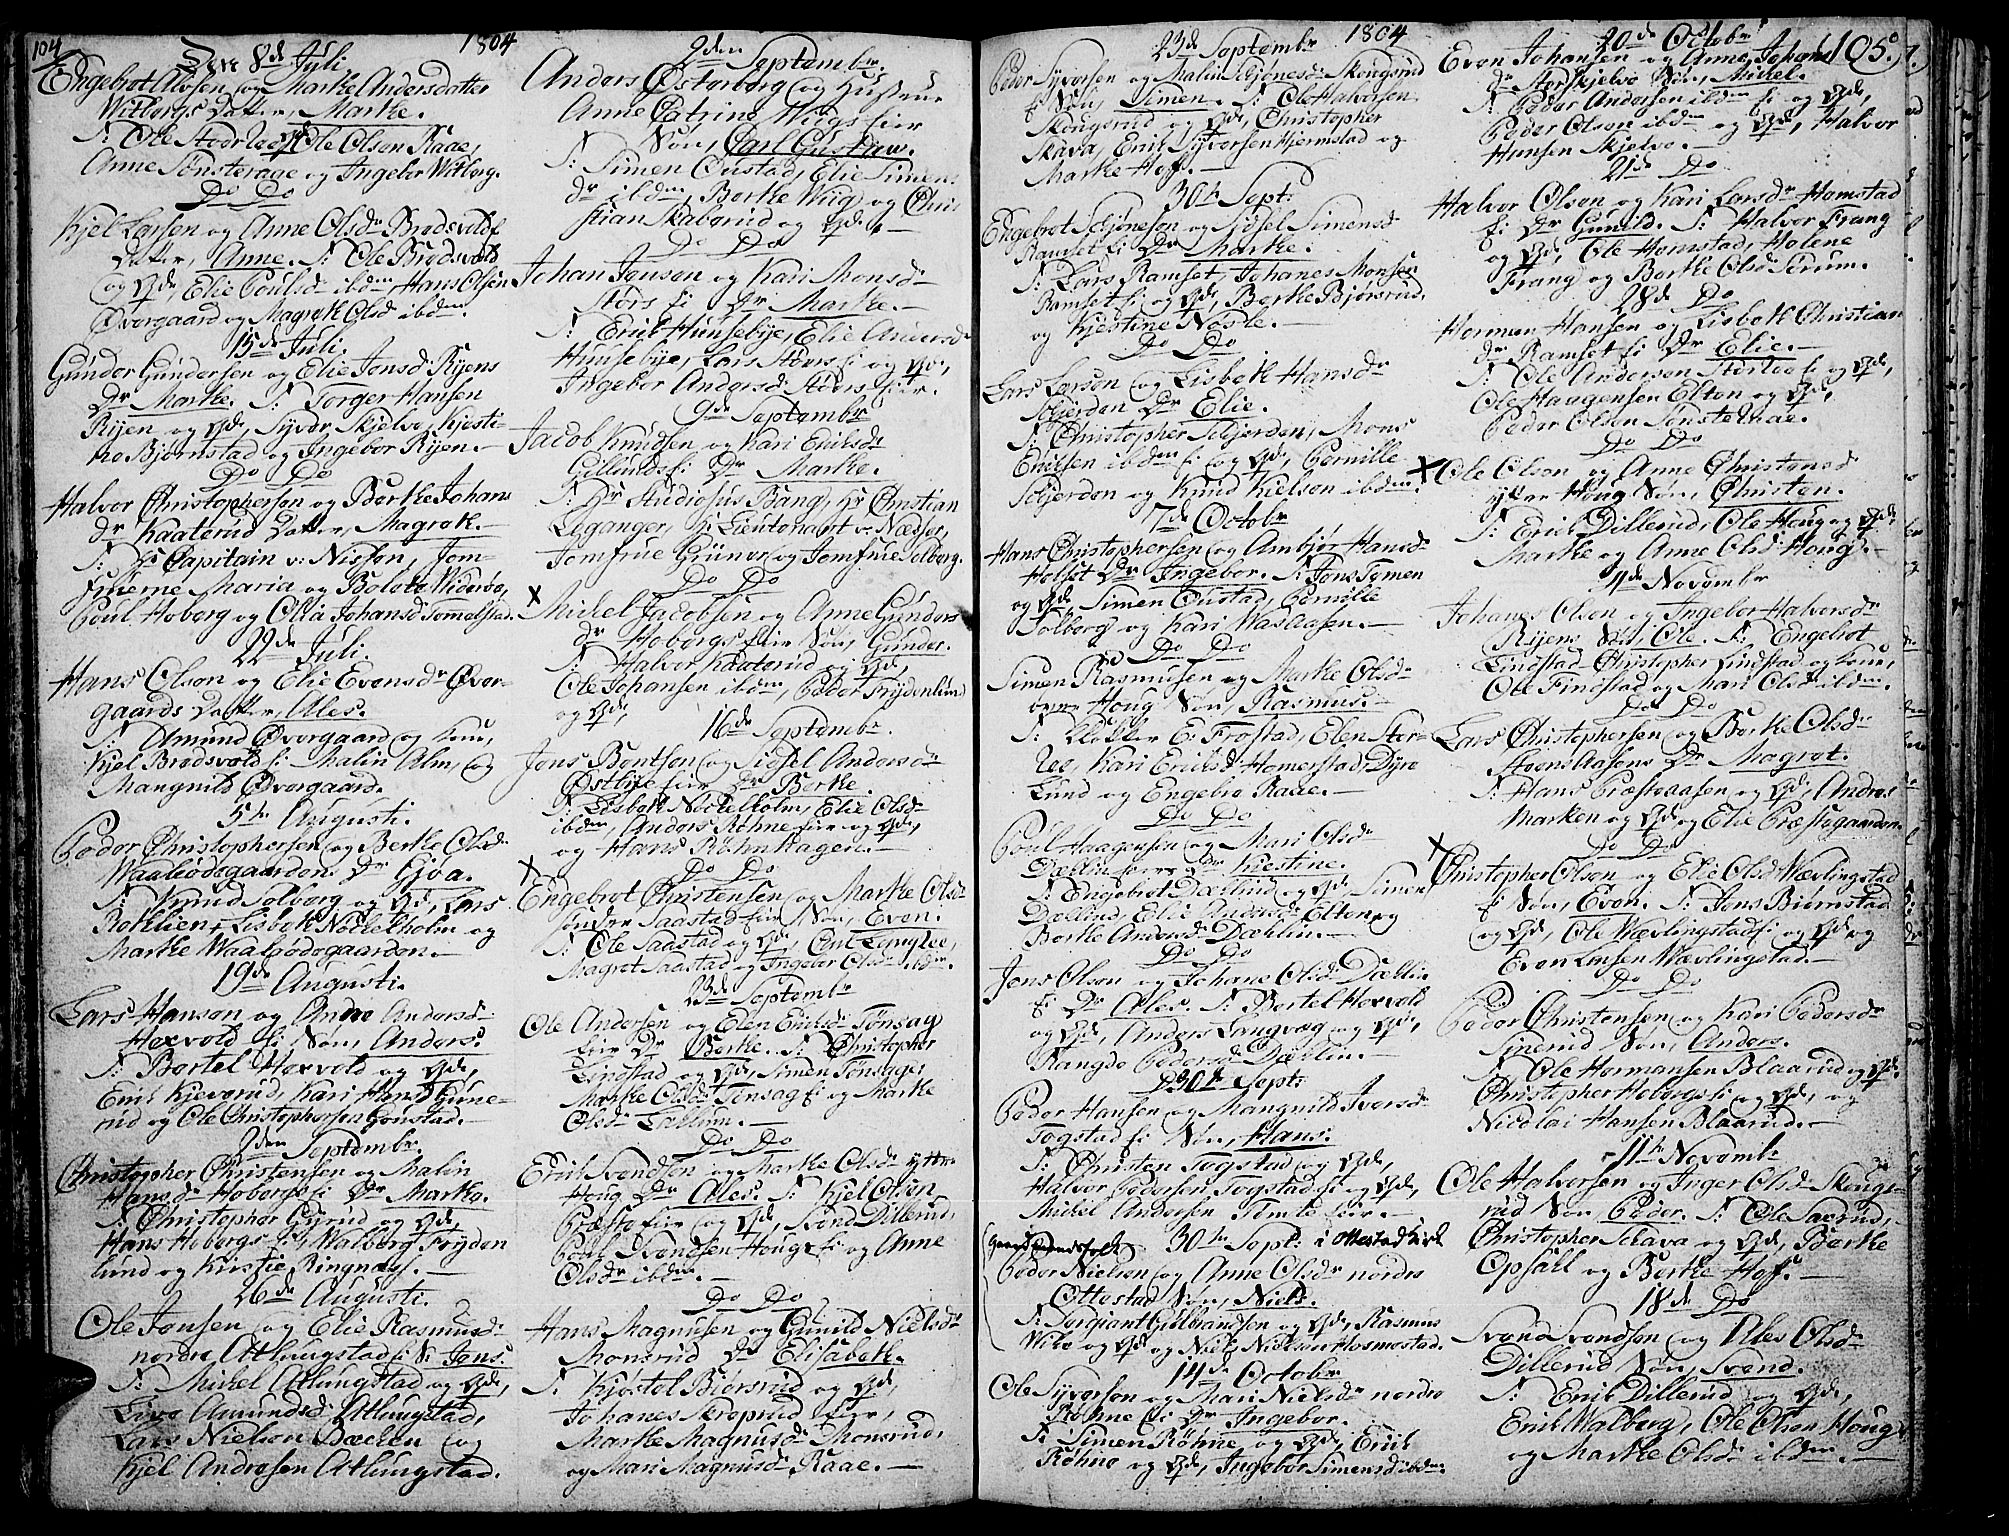 104
Den 8de Juli 1804
Engebret Olsen og Marthe Andersdatter
Witbergs Datter, Marthe.
Anne Sønsterage og Ingebor Witberg.
Do Do
Kjel Larsen og Anne Olsdr Brødsvold
Datter, Anne. F: Ole Brødsvold
og Qde, Elie Poulsd ibdm Hans Olsen
Øvergaard og Magrete Olsd ibdm.
15de Juli.
Gunder Gundersen og Elie Jonsd Ryens
Dr Marthe. F: Torger Hansen
Ryen og Qde, Syver Skjelve, Kjesti-
ne Bjørnstad og Ingebor Ryen.
Do Do
Halvor Christophersen og Berthe Johans
dr Kaaterud Datter, Magrete.
F: Hr Capitain v: Nissen, Jom-
fruerne Maria og Bolete Widerøe,
Poul Hoberg og Olia Johansd Tommelstad.
22de Juli.
Hans Olsen og Elie Evensdr Øver-
gaards Datter, Ales.
F: Amund Øvergaard og kone,
Kjel Brødsvold fi Malin Alm, og
Mangnild Øvergaard.
5te Augusti.
Peder Christophersen og Berthe Olsd
Waalsødegaarden Dr Gjøa.
F: Knud Solberg og Qde, Lars
Rothlien, Lisbeth Nockleholm og
Marthe Waalsødegaarden.
19de Augusti.
Lars Hansen og Anne Andersd
Hoxvold fi Søn, Anders.
F: Bertel Hoxvold og Qde,
Erik Kjeverud, Kari Hansd Gune-
rud og Ole Christophersen Gonstad.
2den Septembr
Christopher Christensen og Malin
Hansd Hobergs fi Dr Marthe.
F: Christopher Gyrud og Qde,
Hans Hobergs fi, Walberg Fryden-
lund og Kristie Ringnæs.
26de Augusti.
Ole Jonsen og Elie Rasmusd
nordre Athlungstad fi S: Jens.
F: Mikel Athlungstad og Qde,
Live Amundsd Athlungstad,
Lars Nielsen Bæcken og
Kjel Andresen Athlungstad.
2den Septembr.
Anders Østerberg og Hustrue
Anne Catrine Wiigs fier
Søn, Carl Gustaw.
F: Simen Oustad, Elie Simens
dr ibdm, Berthe Wiig og Chri-
stian Skaberud og Qde.
Do Do
Johan Jonsen og Kari Monsd
Stors fi Dr Marthe.
F: Erik Hunsebye, Elie Andersd
Hunsebye, Lars Stors fi og Qde,
Ingebor Andersd Stors fier.
9de Septembr
Jacob Knudsen og Kari Eriksd
Gillunds fi Dr Marthe.
F: Hr Studiosus Bang, Hr Christian
Leganger, Hr Lieutenant v: Nædser,
Jomfrue Grüner og Jomfrue Solberg.
Do Do
X Mickel Jacobsen og Anne Gunders
dr Hobergs eier Søn, Gunder.
F: Halvor Kaaterud og Qde,
Ole Johansen ibdm, Peder Frydenlund
og Qde,
16de Septembr.
Jens Bentsen og Sidsel Andersd
Østbye fier Dr Berthe.
F: Lisbeth Nockleholm, Elie Olsd
ibdm, Anders Røhne fier og Qde,
og Hans Røhn hagen.
Do Do
X Engebret Christensen og Marthe Olsd
søndre Saastad fier Søn, Even.
F: Ole Saastad og Qde,
Magret Saastad og Ingebor Olsd ibdm.
23de Septembr
Ole Andersen og Elen Eriksd Tønsag
fier Dr Berthe. F: Christopher
Lindstad og Qde, Simen Tønsage,
Marthe Olsd Tønsag fi og Marthe
Olsd
Do Do
Erik Svendsen og Marthe Olsd yttre
Houg Dr Ales. F: Kjel Olsen
Præsto fier og Qde, Svend Dillerud,
Poul Svendsen Houg fi og Anne
Olsdr ibdm.
Do Do
Hans Magnusen og Gunild Nielsd
Monsrud Dr Elisabeth.
F: Kjøstel Biørsrud og Qde,
Johanes fier,
Marthe Magnusd Monsrud,
og Mari Magnusd Raae.
23de Septembr 1804
Peder Syversen og Malin Schjønesd Skougsrud
fi Søn, Simen. F: Ole Halvorsen
Skougsrud og Qde, Christopher
Skava, Erik Syversen Hjermstad og
Marthe Hoff.
30te Sept:
Engebret Schjønesen og Sidsel Simensd
Ramset fi Dr Marthe.
F: Lars Ramset, Johanes Monsen
Ramset fi og Qde, Berthe Bjørsrud,
og Kjestine Nøsle.
Do Do
Lars Larsen og Lisbeth Hansdr
Schjerden Dr Elie.
F: Christopher Schjerden, Mons
Eriksen ibdm fi og Qde, Pernille
Schjerden og Knud Kielsen ibdm.
7de Octobr
Hans Christophersen og Ambjør Hansd
Holset Dr Ingebor. F: Jens Tomen
og Qde Simen Oustad, Pernille
Solberg og Kari Wasaasen.
Do Do
Simen Rasmusen og Marthe Olsd
øvre Houg Søn, Rasmus.
F: Klokker E: Frostad, Elen Stor-
lee, Kari Eriksd Homerstad, Dyre
Lund og Engebre Raae.
Do Do
Poul Haagensen og Mari Olsd
Dæhlin fiers Dr Kiestine.
F: Engebret Dæhlind og Qde Simen
Dæhlind, Elie Andersd Elton og
Berthe Andersd Dæhlin.
Do Do
Jens Olsen og Johane Olsd Dæhlin
fi Dr Ales. F: Bertel Hoxvold
og Qde, Anders Langvæg og Qde,
Rangdo Pedersd Dæhlin.
30te Sept:
Peder Hansen og Mangnild Iversd
Togstad fi Søn, Hans.
F: Christen Togstad og Qde,
Halvor Pedersen Togstad fi og Qde,
Mickel Andersen Tomte fier.
30te Sept: i Ottestad kirk
Peder Nielsen og Anne Olsdr nordre
Ottestad Søn, Niels.
F: Sergiant Gulbrandsen og Qde, Rasmus
Wiko og Qde og Niels Nielsen Hosmestad.
14de October
Ole Syversen og Mari Nielsdr nordre
Røhne fi Dr Ingebor.
F: Simen Røhne og Qde, Erik
Røhne og Qde, Ingebor Simensd ibdm.
20de Octobr 105.
Even Johansen og Anne Johans
dr Storskjelve Søn, Mickel.
F: Peder Andersen ibdm fi og Qde,
Peder Olsen ibdm og Qde, Halvor
Hansen Skjelve.
21de Do
Halvor Olsen og Kari Larsdr Homstad
fi Dr Gunild. F: Halvor Frang
og Qde, Ole Homstad, Helene
Frang og Berthe Olsd Serum.
28de Do
Herman Hansen og Lisbeth Christian
dr Ramset fi Dr Elie.
F: Ole Andersen Storlee fi og Qde,
Ole Haagensen Elton og Qde,
Peder Olsen Sønsteraae.
Do Do
X Ole Olsen og Anne Christensd
ytter Houg Søn, Christen.
F: Erik Dillerud, Ole Houg og Qde,
Marthe og Anne Olsd Houg.
4de Novembr
Johanes Olsen og Ingebor Halvorsdr
Ryens Søn, Ole. F: Engebret
Lindstad Christopher Lindstad og kone,
Ole Findstad og Mari Olsd ibdm.
Do Do
Lars Christophersen og Berthe Olsdr
Steensaasens Dr Magret.
F: Hans Præsteaasen og Qde, Andres
Marken og Qde, og Elie Præstegaarden.
Do Do
X Christopher Olsen og Elie Olsd Wævlingstad
fi Søn, Even. F: Jens Biørnstad
og Qde, Ole Wævlingstad fi og Qde og
Even Larsen Wævlingstad.
Do Do
Peder Christensen og Kari Pedersdr
Sinerud Søn, Anders.
F: Ole Hermansen Blaarud og Qde,
Christopher Hobergs fi og Qde, og
Nicolai Hansen Blaarud.
11te Novembr
Ole Halvorsen og Inger Olsdr Skougs-
rud Søn Peder. F: Ole Saxrud,
Christopher Skava og Qde, Berthe
Opsall og Berthe Hoff.
18de Do
Svend Svendsen og Ales Olsd
Dillerud Søn, Svend.
F: Erik Dillerud og Qde,
Erik Walberg, Ole Olsen Houg
og Marthe Olsdr ibdm.